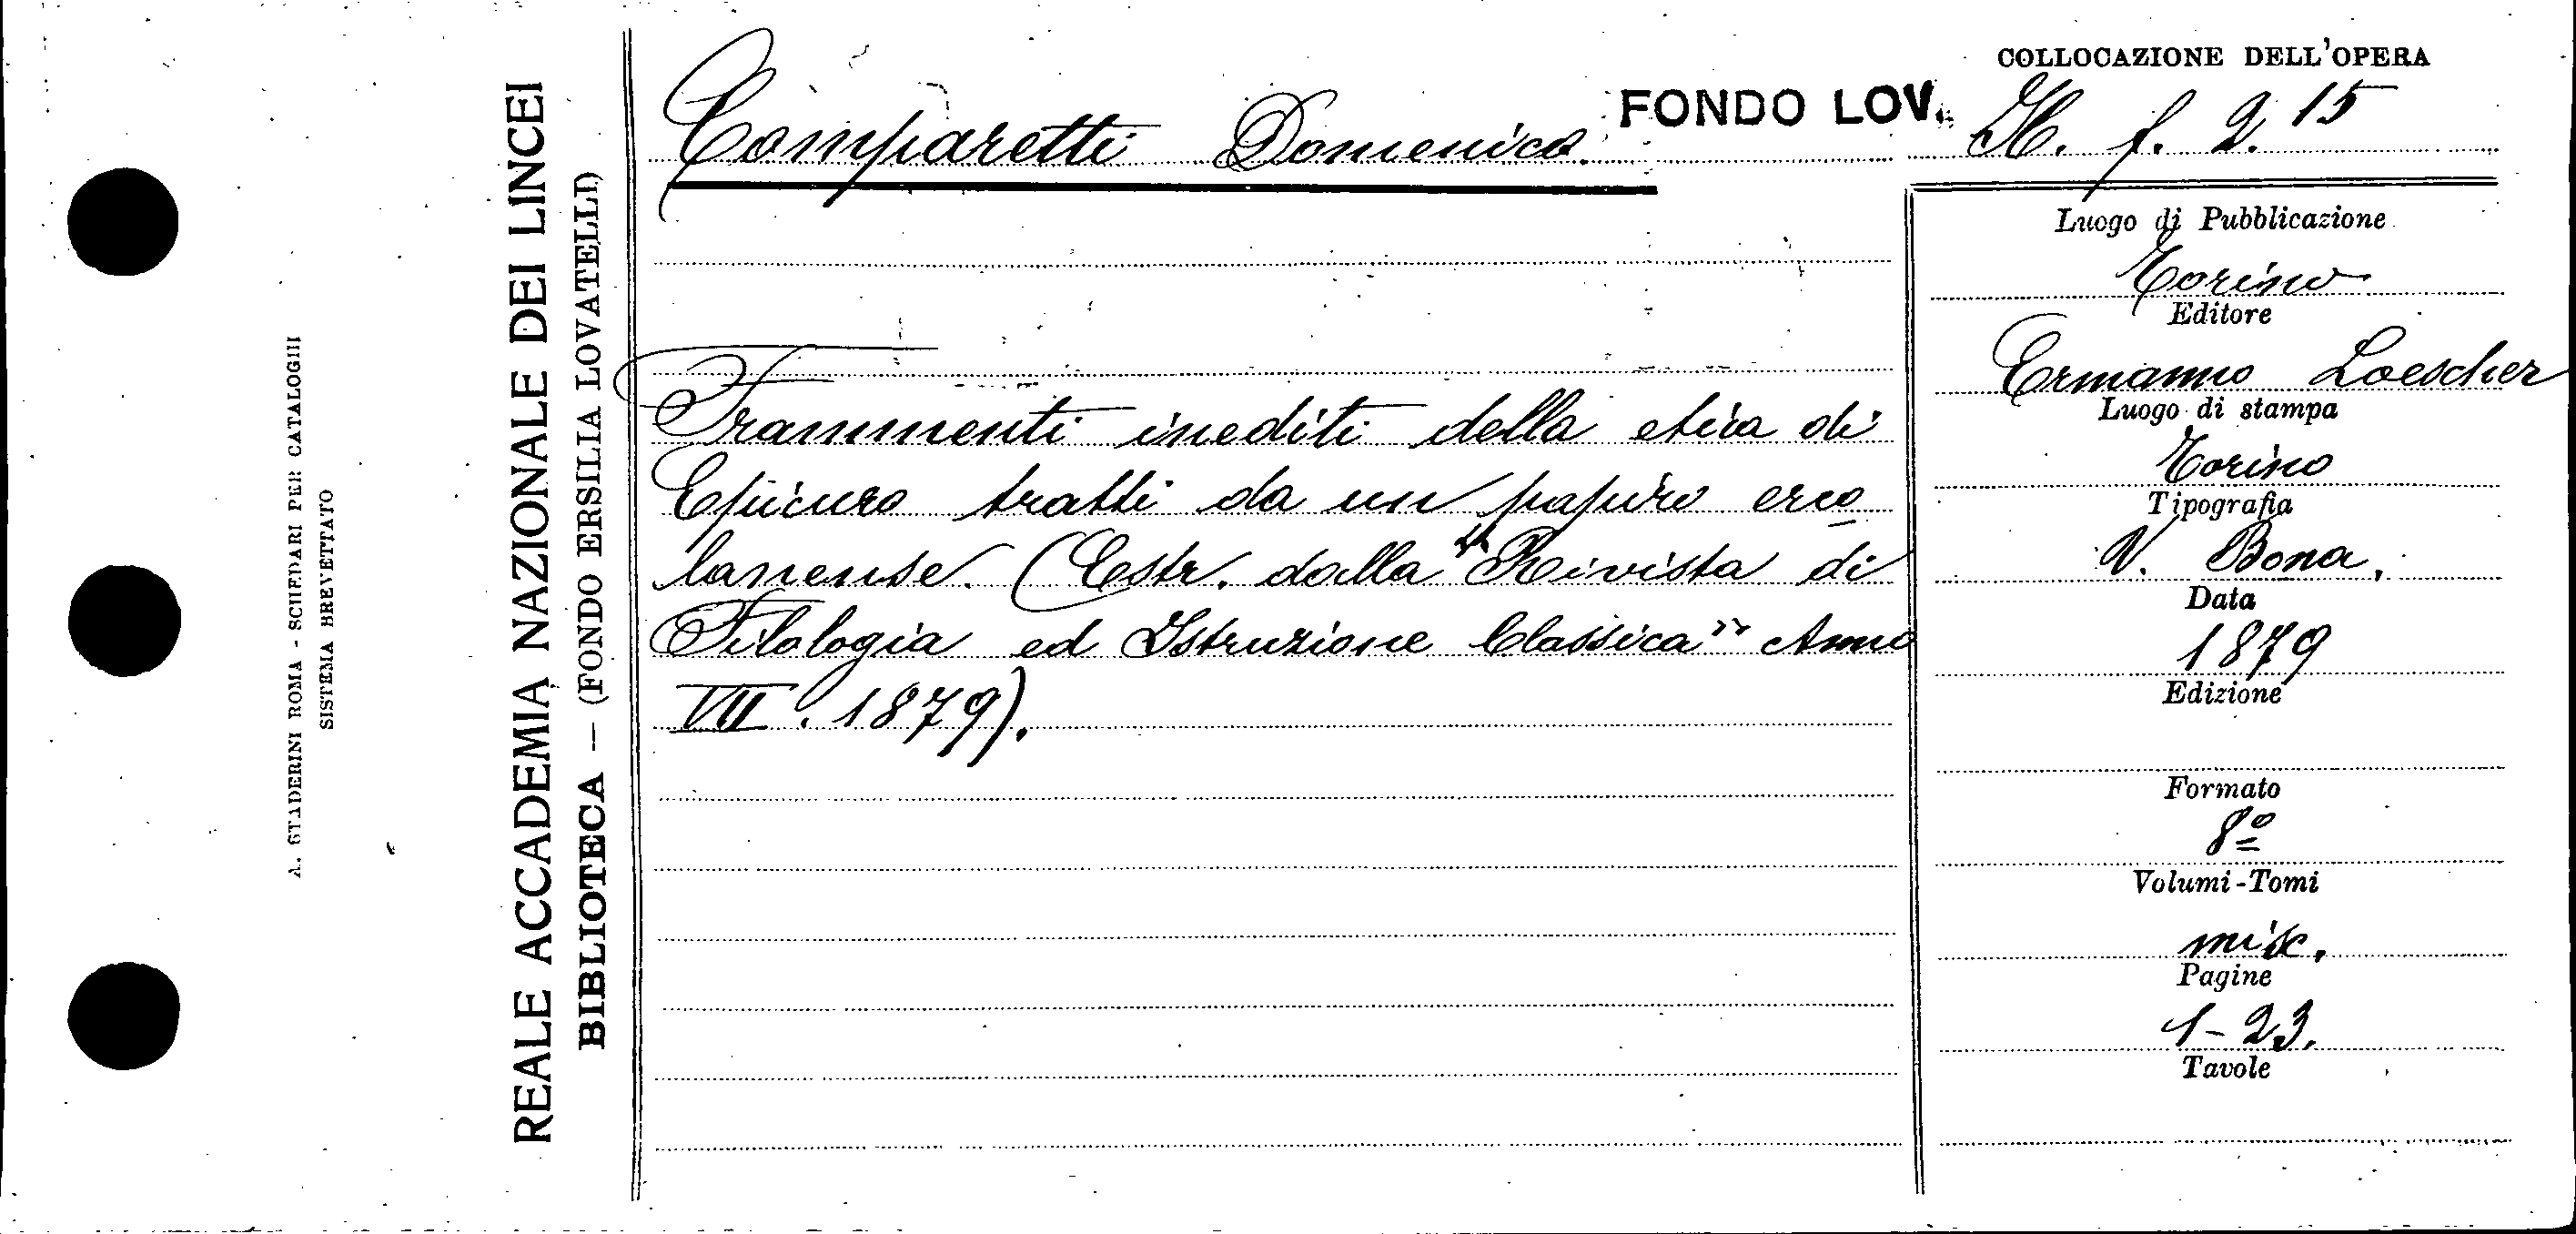 A. STADERINI ROMA - SCHEDARI PER CATALOGHI
SISTEMA BREVETTATO
REALE ACCADEMIA NAZIONALE DEI LINCEI
BIBLIOTECA — (FONDO ERSILIA LOVATELLI)
Comparetti Domenico.
FONDO LOV.
COLLOCAZIONE DELL'OPERA
H. f. 2. 15
Frammenti inediti della etica di
Epicuro tratti da un papiro erco
lanense. (Estr. dalla "Rivista di
Filologia ed Istruzione Classica" Anno
VII. 1879).
Luogo di Pubblicazione
Torino
Editore
Ermanno Loescher
Luogo di stampa
Torino
Tipografia
V. Bona.
Data
1879
Edizione
Formato
8º
Volumi-Tomi
misc.
Pagine
1-23.
Tavole